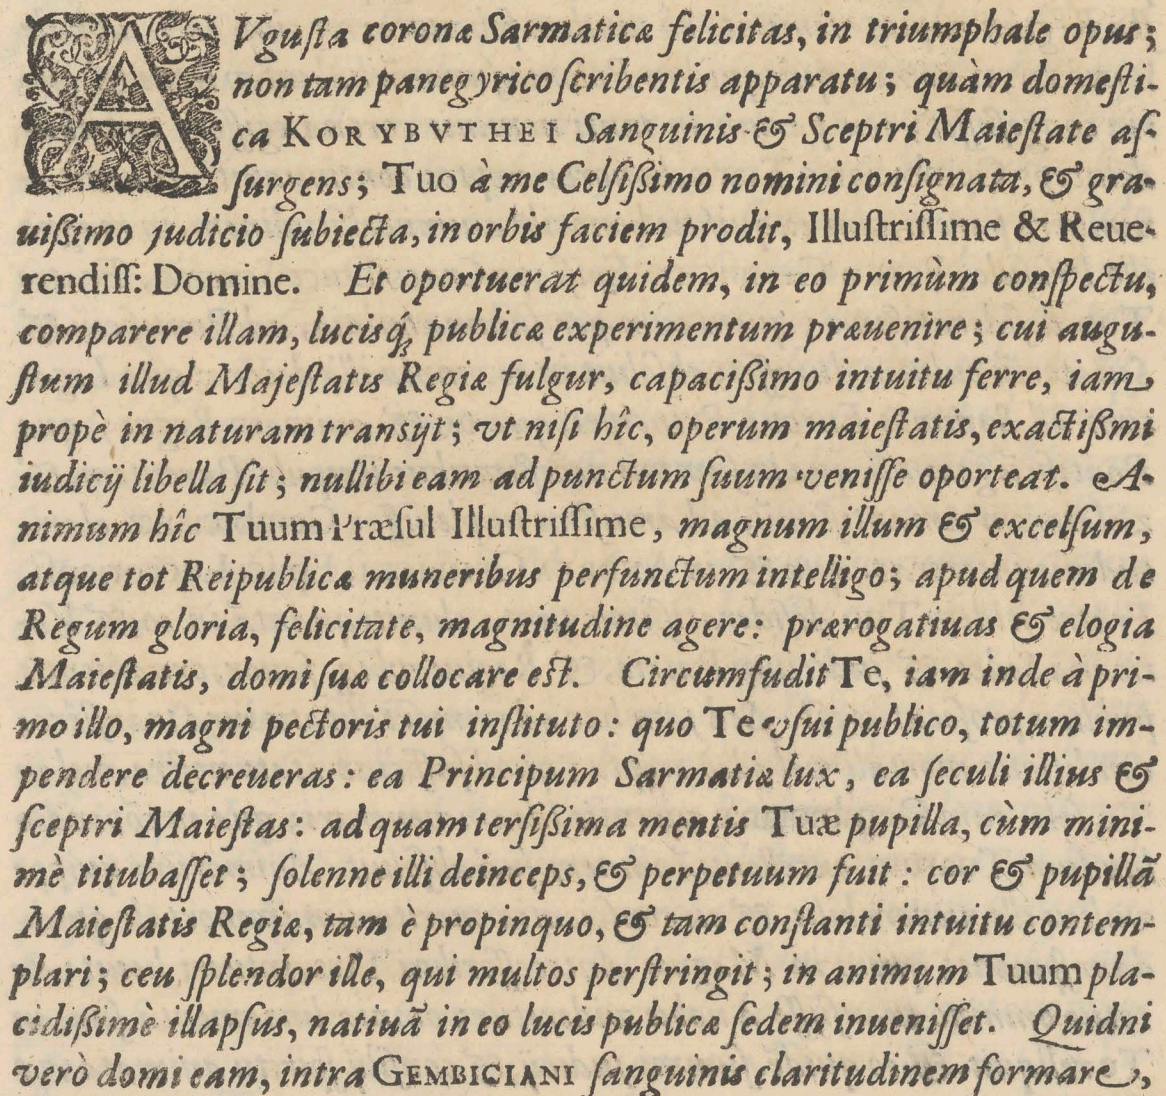 AVguſta coronæ Sarmaticæ felicitas, in triumphale opus;
non tam panegyrico ſcribentis apparatu; quàm domeſti-
ca KORYBVTHEI Sanguinis & Sceptri Maieſtate aſ-
ſurgens; Tuo à me Celſißimo nomini conſignata, & gra-
uißimo judicio ſubiecta, in orbis faciem prodit, Illuſtriſſime & Reue-
rendiſſ: Domine. Et oportuerat quidem, in eo primùm conſpectu,
comparere illam, lucisq́; publicæ experimentum præuenire; cui augu-
ſtum illud Majeſtatis Regiæ fulgur, capacißimo intuitu ferre, iam
propè in naturam tranſijt; vt niſi hîc, operum maieſtatis, exactißmi
iudicij libella ſit; nullibi eam ad punctum ſuum veniſſe oporteat. A-
nimum hîc Tuum Præſul Illuſtriſſime, magnum illum & excelſum,
atque tot Reipublicæ muneribus perfunctum intelligo; apud quem de
Regum gloria, felicitate, magnitudine agere: prærogatiuas & elogia
Maieſtatis, domi ſuæ collocare eſt. Circumfudit Te, iam inde à pri-
mo illo, magni pectoris tui inſtituto: quo Te vſui publico, totum im-
pendere decreueras: ea Principum Sarmatiæ lux, ea ſeculi illius &
ſceptri Maieſtas: ad quam terſißima mentis Tuæ pupilla, cùm mini-
mè titubaſſet; ſolenne illi deinceps, & perpetuum fuit: cor & pupillã
Maieſtatis Regiæ, tam è propinquo, & tam conſtanti intuitu contem-
plari; ceu ſplendor ille, qui multos perſtringit; in animum Tuum pla-
cidißimè illapſus, natiuã in eo lucis publicæ ſedem inueniſſet. Quidni
verò domi eam, intra GEMBICIANI ſanguinis claritudinem formare,